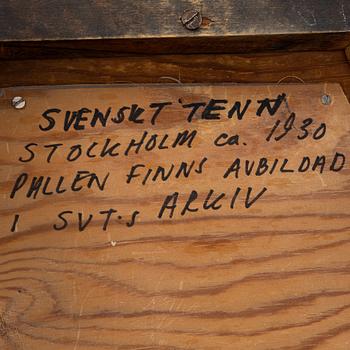 SVENSKT TENN
STOCKHOLM ca. 1930
PALLEN FINNS AVBILDAD
I SVT:s ARKIV